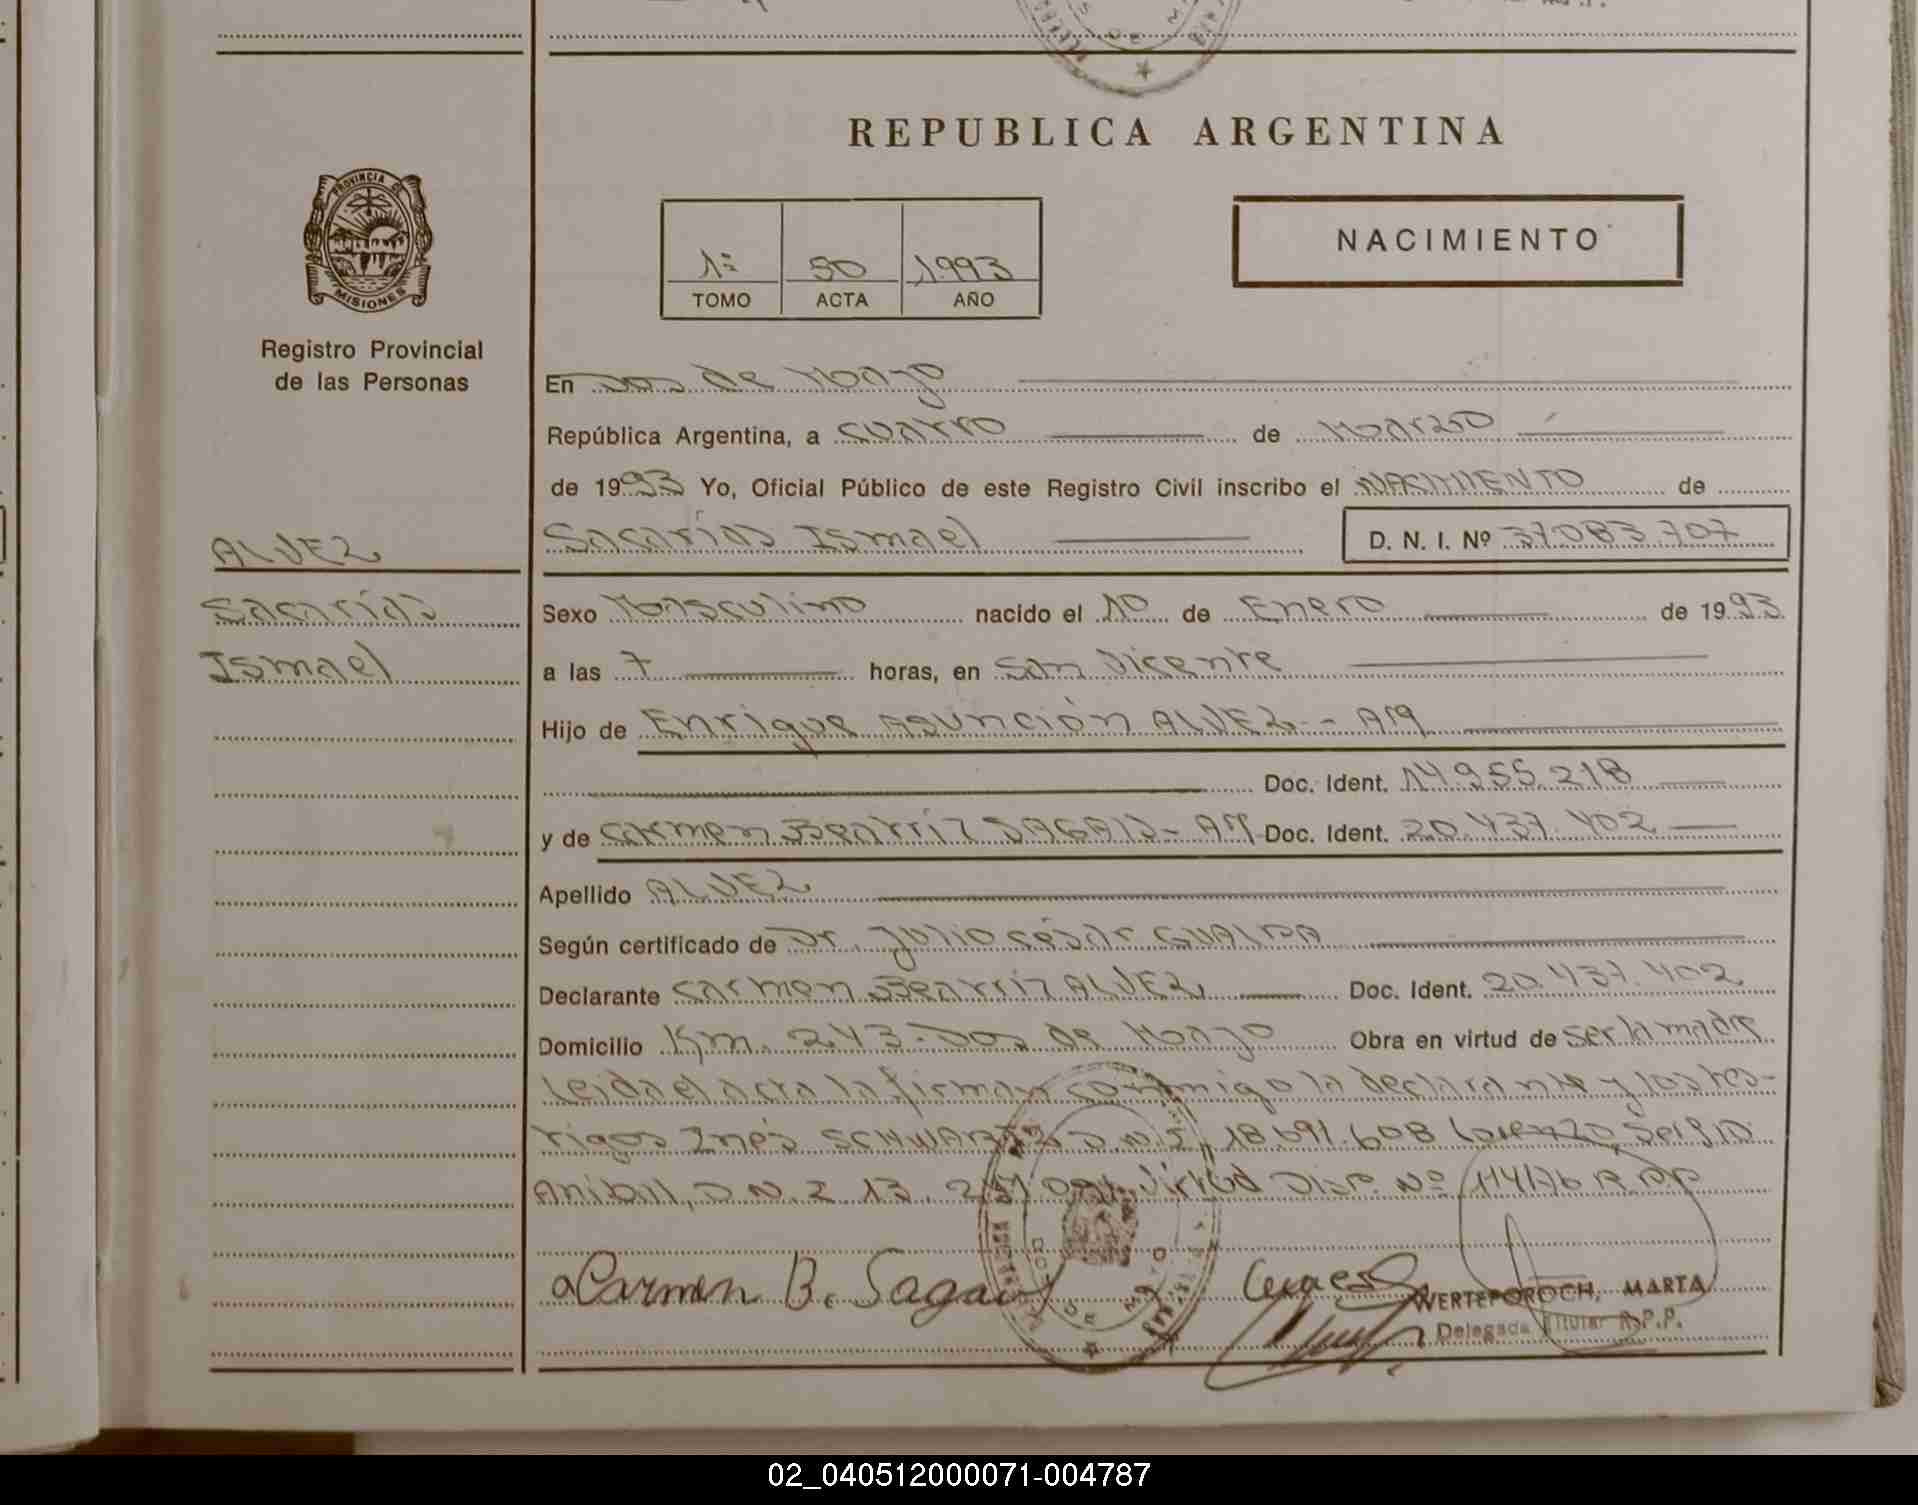 REPUBLICA ARGENTINA
PROVINCIA DE
MISIONES
Registro Provincial
de las Personas
NACIMIENTO
1º 50 1993
TOMO ACTA AÑO
En Dos de Mayo
República Argentina, a cuatro de Marzo
de 1993 Yo, Oficial Público de este Registro Civil inscribo el NACIMIENTO de
ALVEZ
Sacarías Ismael D. N. I. Nº 37.083.707
Sacarías
Sexo Masculino nacido el 10 de Enero de 1993
Ismael
a las 7 horas, en San Vicente
Hijo de Enrique Asunción ALVEZ - Arg
Doc. Ident. 14.955.218
y de Carmen Beatriz DAGAIS - Arg Doc. Ident. 20.437.402
Apellido ALVEZ
Según certificado de Dr. Julio césar GUALDA
Declarante Carmen Beatriz ALVEZ Doc. Ident. 20.437.402
Domicilio Km. 243 - Dos de Mayo Obra en virtud de ser la madre
Leida el acta la firman conmigo la declarante y los tes-
tigos Inés D.N.I. 18.691.608 Lorenzo Sergio
Anibal, D.N.I 13. Virtud Disp. Nº 114/76 R.P.P
Carmen B.
WERTEPOROCH, MARTA
Delegada Titular R.P.P.
02_040512000071-004787